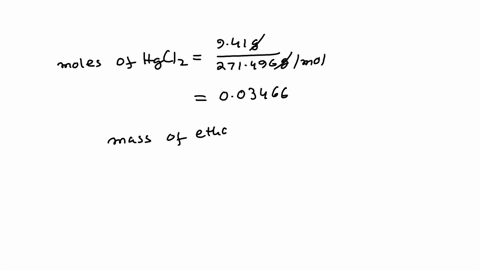 moles of HgCl2 = 9.41g / 271.496g/mol
= 0.03466
mass of etha